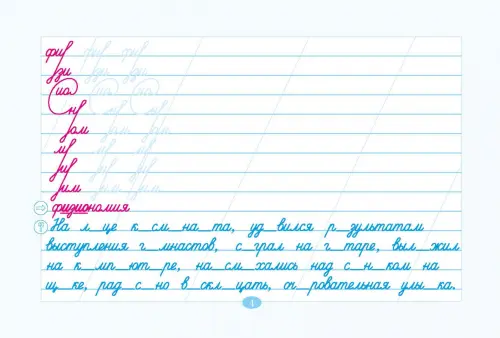 фи фи фи
зи зи зи
ио ио ио
н н н
ом ом ом
ми ми ми
ни ни ни
им им им
физиономия
На л_це к_см_на_та, уд_вился р_зультатам
выступления г_мнастов, с_грал на г_таре, выл_жил
на к_мп_ют_ре, на см_хались над с_н_ком на
щ_ке, рад_с_но в_скл_цать, оч_ровательная улы_ка.
4